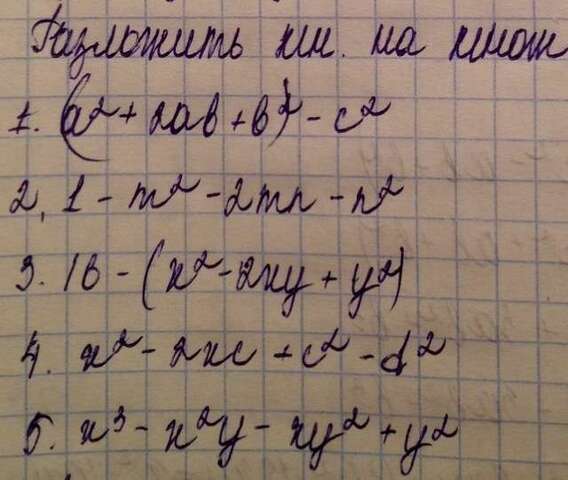 Разложить мн. на множ
1. (a² + 2ab + b²) - c²
2. 1 - m² - 2mn - n²
3. 16 - (x² - 2xy + y²)
4. x² - 2xc + c² - d²
5. x³ - x²y - xy² + y²